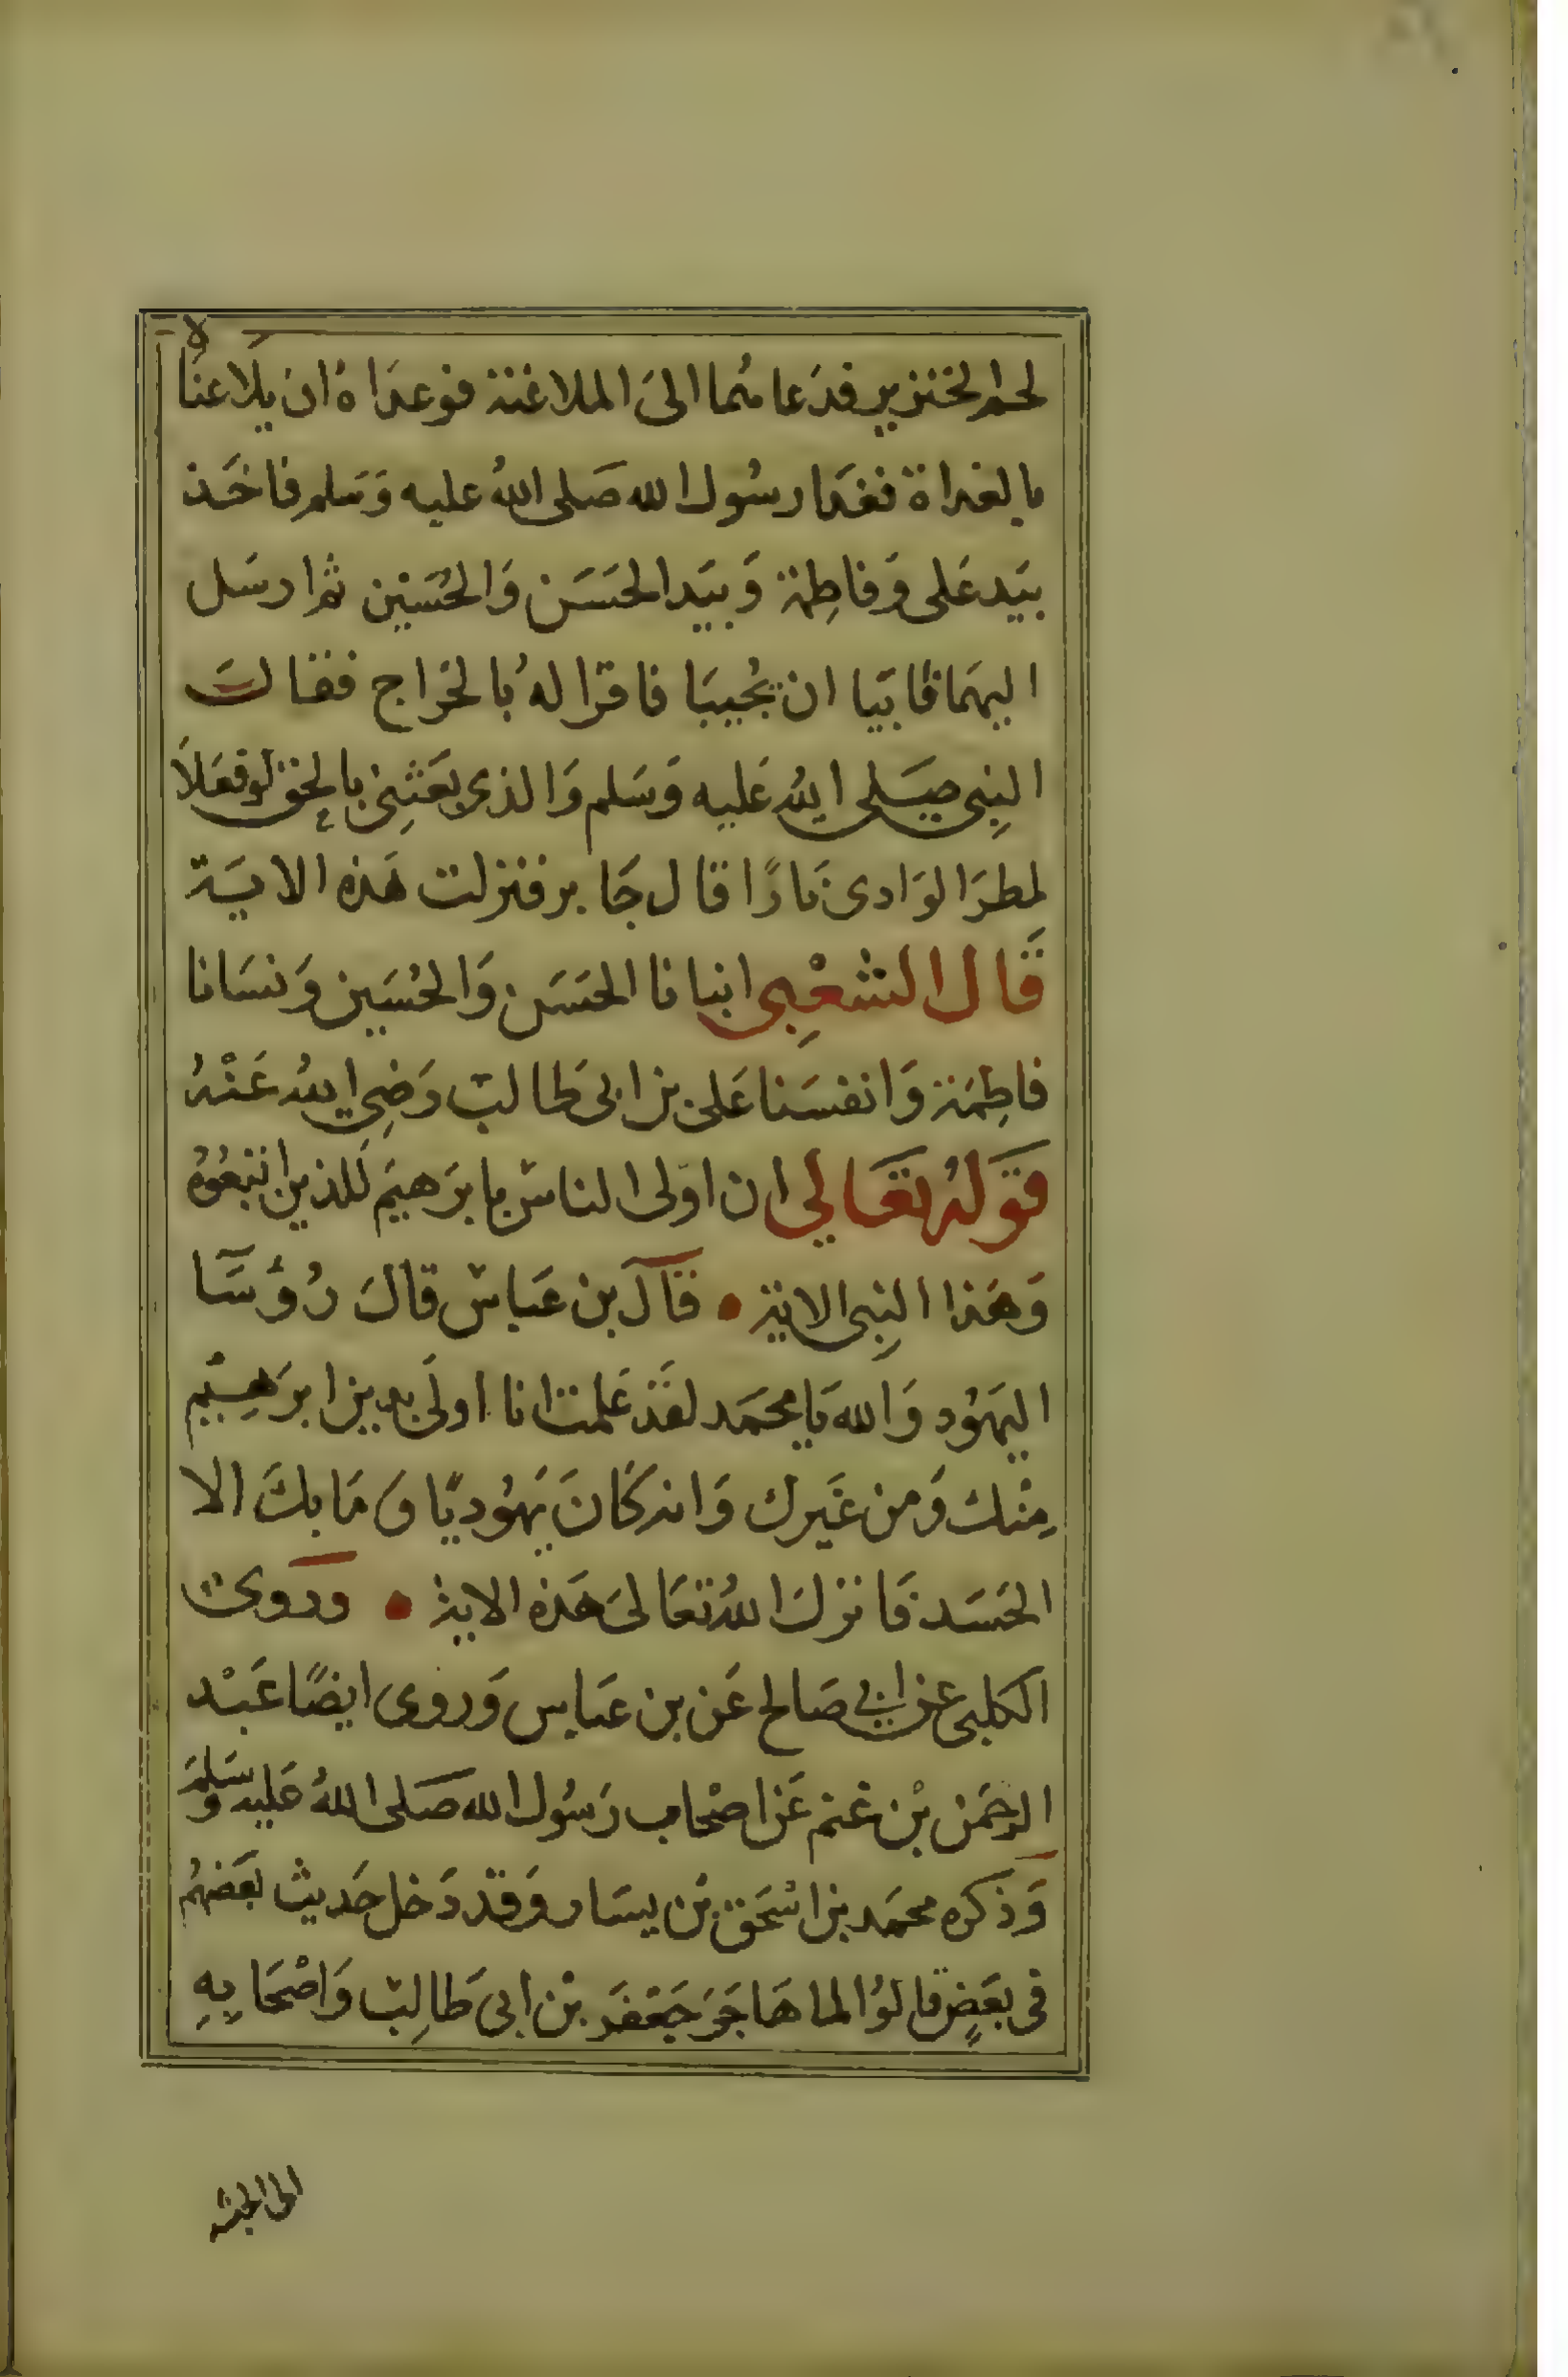 لحم الخنزير فدعاهما الى الملاعنة فوعداه ان يلاعناه
بالغداة فغدا رسُول الله صَلى اللهُ عليه وَسَلم فاخَذ
بيَد عَلى وَفاطِمة وَبيَد الحَسَن وَالحُسَيْن ثم ارسَل
اليهمَا فابَيا ان يجُيبَا فاقرا لهُ بالخرَاج فقالَ
النبِى صَلى اللهُ عَليه وَسَلم وَالذى بعَثنِى بالحق لو فعَلاَ
لمطرَ الوَادى نَارًا قال جَابر فنزلت هَذه الايَة
قَال الشعْبِى ابنانا الحَسَن وَالحُسَين وَنسَانا
فاطِمَة وَانفسَنا عَلى بن ابى طَالب رَضِى اللهُ عَنْهُ
قوَلهُ تعَالى ان اوَلى الناسْ بابرَهيَم لَلذين اتبعُوُه
وَهَذا النبِى الاية • قَال بن عَباسْ قالَ رُؤسَآ
اليَهوُد وَالله يَا محمَد لقَدْ عَلمت انا اولىَ بدين ابرَهِيْم
مِنْك وَمن غيَرك وَانه كَانَ يَهوُديًا وَ مَا بكَ الا
الحَسَد فَانزلَ اللهُ تعَالىَ هَذه الاية • وروى
الكلبى عن ابي صَالح عَن بن عبَاس وَروى ايضًا عَبْد
الرحمَن بْن غنم عَن اصْحاب رَسُول الله صَلى اللهُ عَليه وَسَلمَ
وَذكره محمَد بن اسْحَق بن يسَار وَقدْ دَخل حَديث بعَضهُم
فى بعَضٍ قالوُا لما هَاجَرَ جَعْفَر بْن ابى طَالِبْ وَاصْحَابِهِ
الى الحبشة